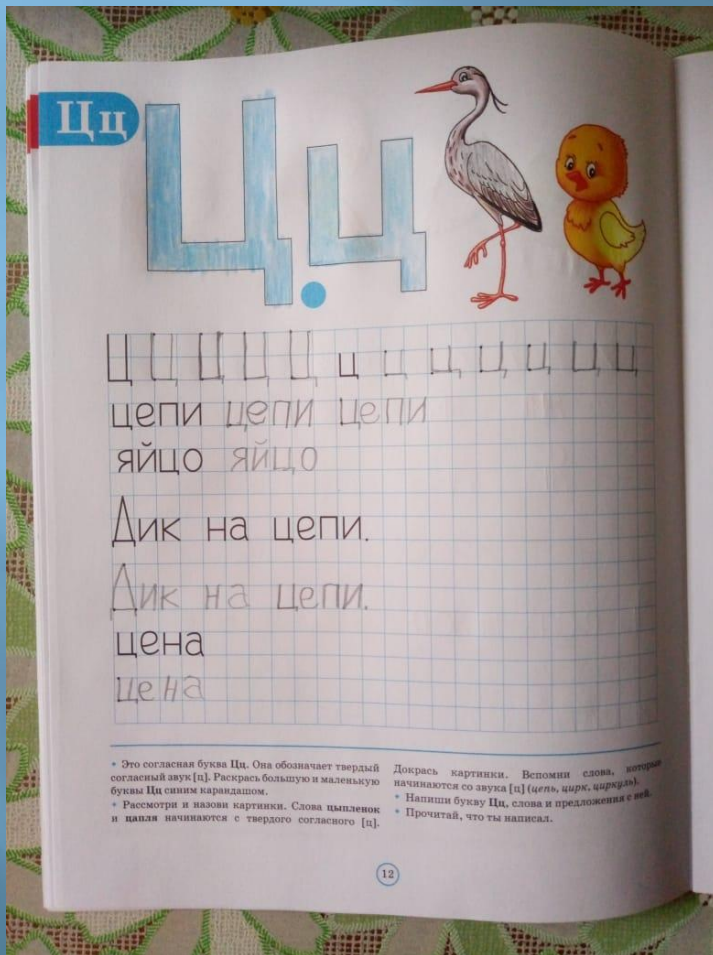 Цц
Ц ц
Ц Ц Ц Ц Ц ц ц ц ц ц ц ц
цепи цепи цепи
яйцо яйцо
Дик на цепи.
Дик на цепи.
цена
цена
• Это согласная буква Цц. Она обозначает твердый
согласный звук [ц]. Раскрась большую и маленькую
буквы Цц синим карандашом.
• Рассмотри и назови картинки. Слова цыпленок
и цапля начинаются с твердого согласного [ц].
Докрась картинки. Вспомни слова, которые
начинаются со звука [ц] (цепь, цирк, циркуль).
• Напиши букву Цц, слова и предложения с ней.
• Прочитай, что ты написал.
12